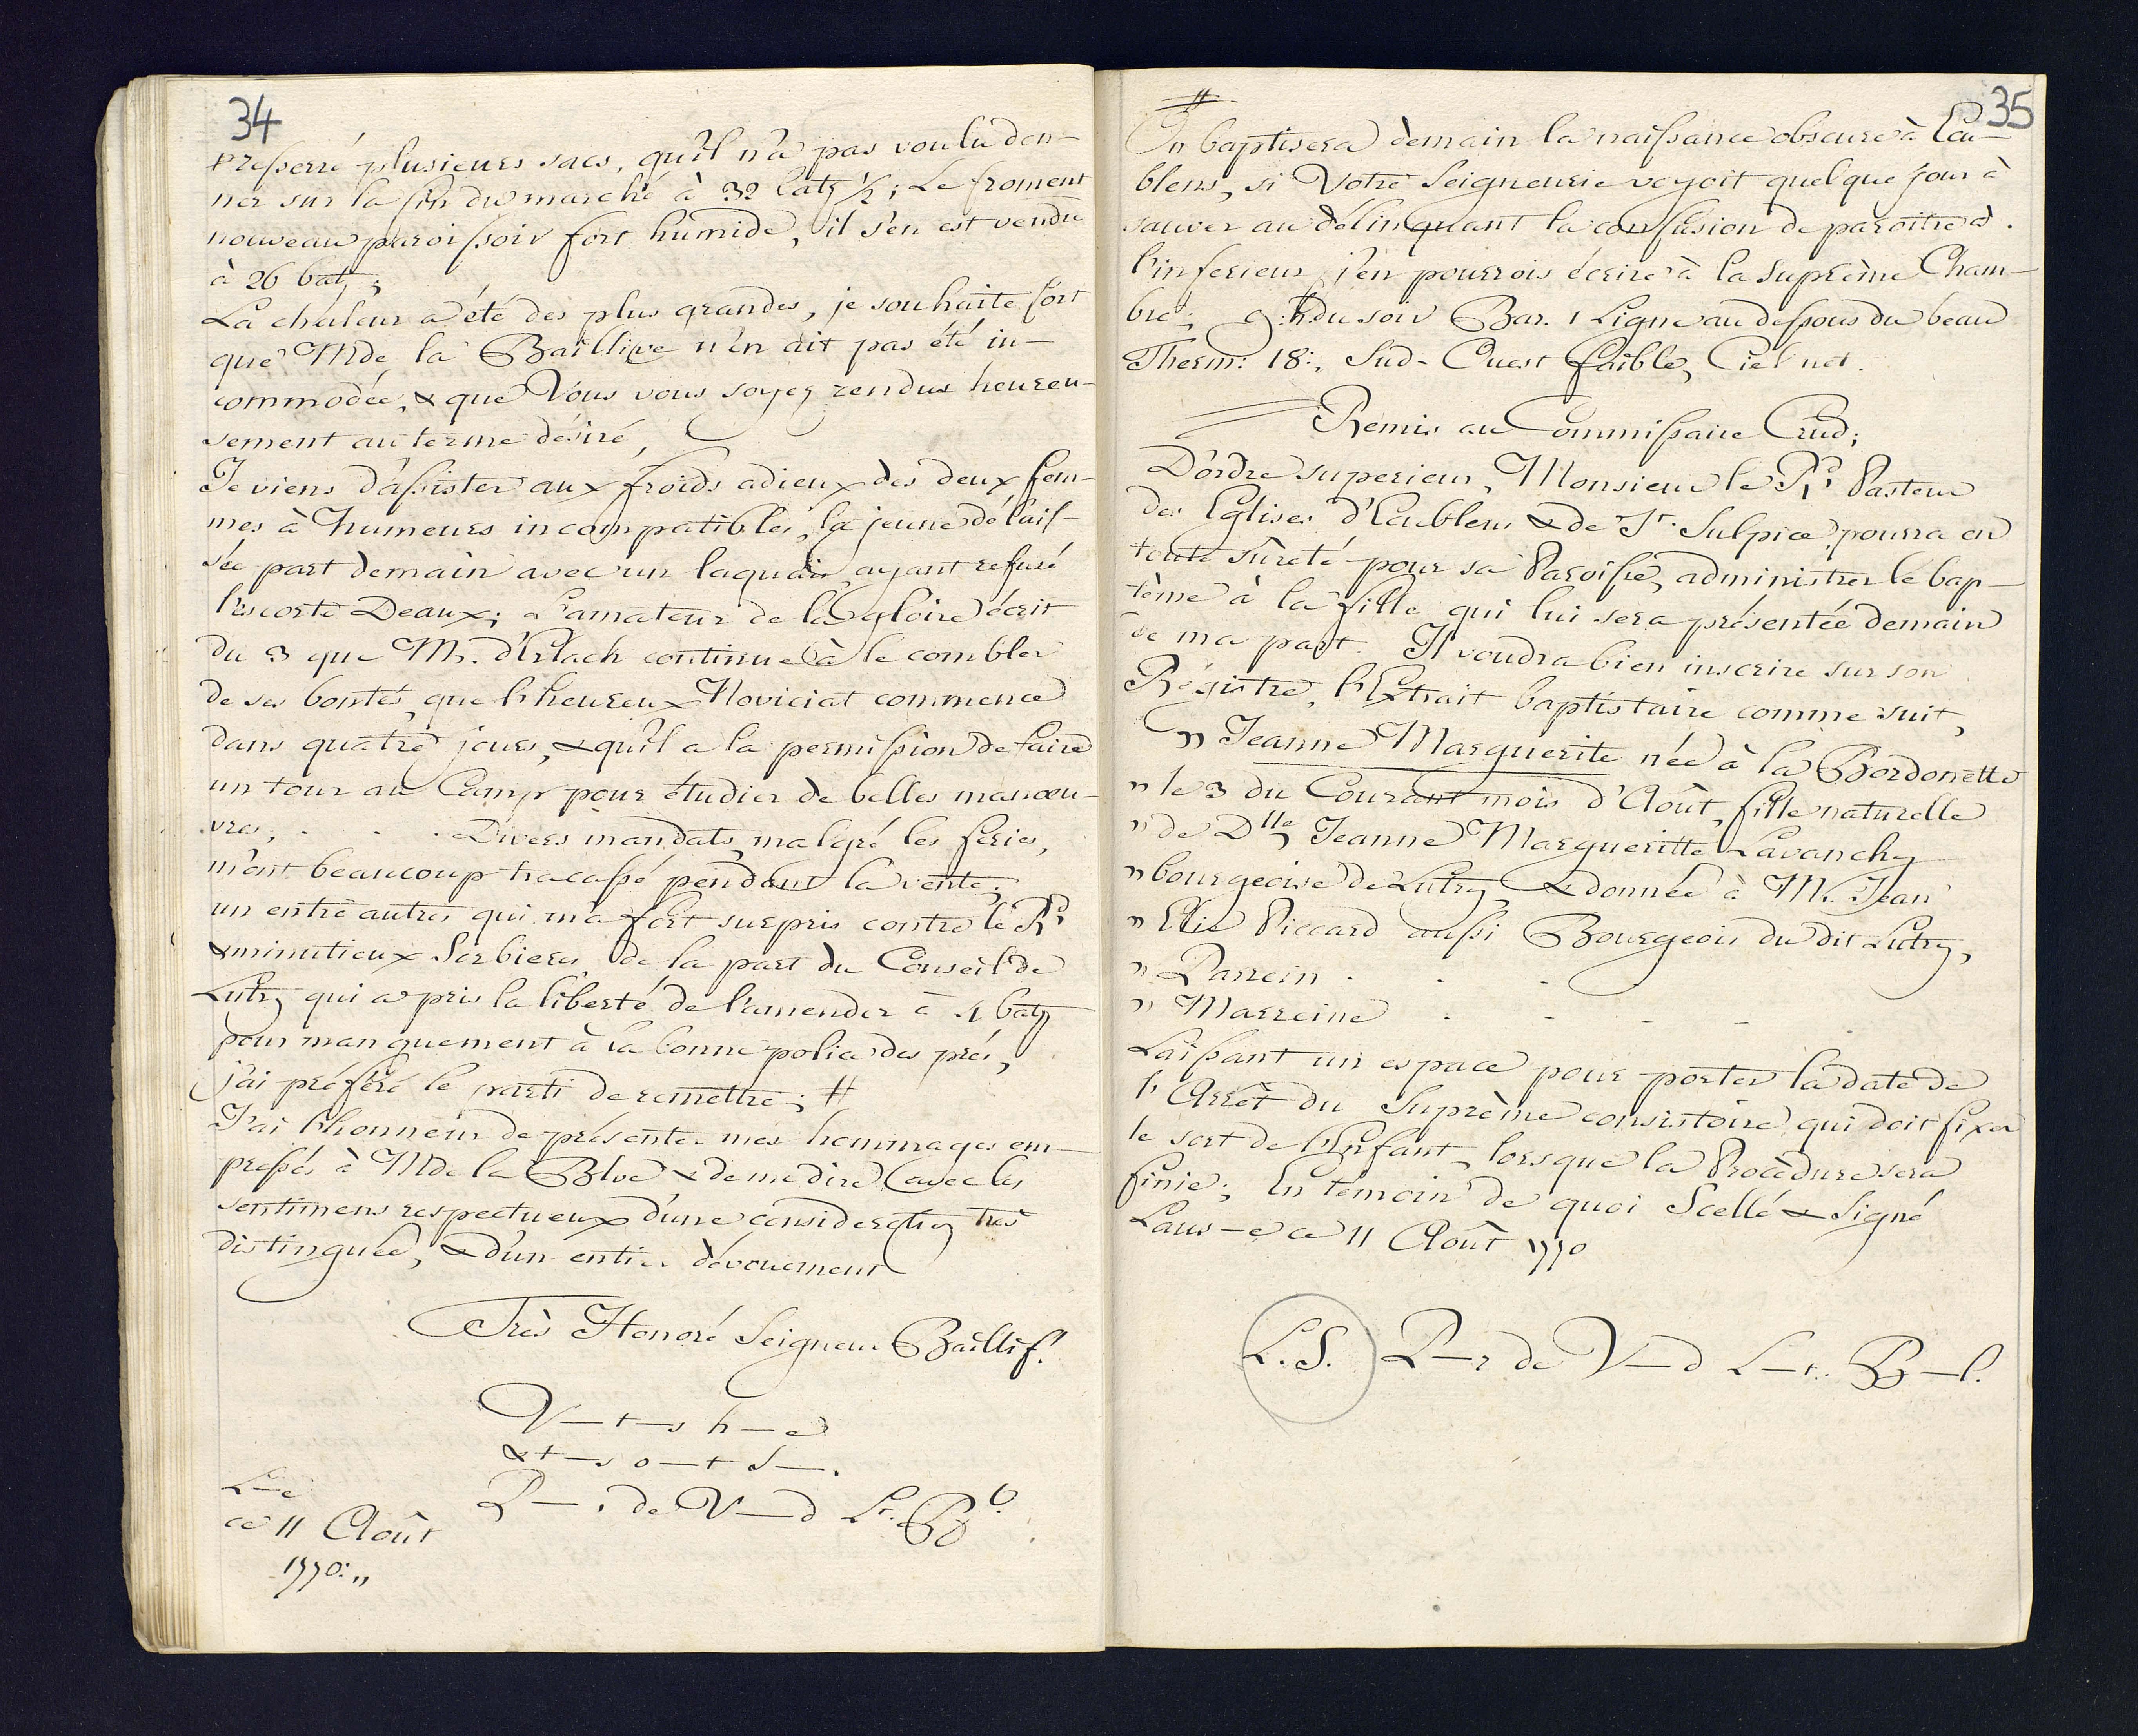 34
resserré plusieurs sacs, qu'il n'a pas voulu don-
ner sur la fin du marché à 32 batz ½; Le froment
nouveau paroissoit fort humide, il s'en est vendu
à 26 batz;
La chaleur a été des plus grandes, je souhaite fort
que Mde la Baillive n'en ait pas été in-
commodée, & que Vous vous soyez rendus heureu-
sement au terme désiré,
Je viens d'assister aux froids adieux des deux fem-
mes à humeurs incompatibles, la jeune délais-
sée part demain avec un laquais, ayant refusé
l'escorte Deaux; L'amateur de la gloire écrit
du 3 que Mr. d'Erlach continue à le combler
de ses bontés, que l'heureux Noviciat commence
dans quatre jours, & qu'il a la permission de faire
un tour au Camp pour étudier de belles manœu-
vres, . . . Divers mandats, malgré les feries,
m'ont beaucoup tracassé pendant la vente;
un entre autres qui m'a fort surpris contre le Rd
& minutieux Sorbieres de la part du Conseil de
Lutry qui a pris la liberté de l'amender à 4 batz
pour manquement à la bonne police des prés,
j'ai préféré le parti de remettre; #
J'ai l'honneur de présenter mes hommages em-
pressés à Mde la Blve & de me dire (avec les
sentimens respectueux d'une consideration très
distinguée, & d'un entier dévouement
Très Honoré Seigneur Baillif!
V—t—s h—e
& t—s o—t S—.
L—e
P—r de V—d Lt. Bl.
ce 11 Août
1770:,,
35
#
On baptisera demain la naissance obscure à Ecu-
blens, si Votre Seigneurie voyoit quelque jour à
sauver au délinquant la confusion de paroitre à
l'inferieur, j'en pourrois écrire à la Suprême Cham-
bre; 9. h. du soir Bar. 1 Ligne au dessous du beau
Therm: 18:, Sud-Ouest foible, Ciel net.
Remis au Commissaire Crud;
D'ordre superieur, Monsieur le Rd Pasteur
des Eglises d'Ecublens & de St. Sulpice, pourra en
toute sûreté pour sa Paroisse, administrer le bap-
tème à la fille qui lui sera présentée demain
de ma part. Il voudra bien inscrire sur son
Régistre, l'Extrait baptistaire comme suit,
" Jeanne Marguerite née à la Bordonette
" le 3 du Courant mois d'Août, fille naturelle
" de Dlle Jeanne Marguerite Lavanchy
" bourgeoise de Lutry, & donnée à Mr. Jean
" Elie Piccard aussi Bourgeois du dit Lutry,
" Parrein . . .
" Marreine . . . . .
Laissant un espace pour porter la date de
l'Arrêt du Suprème consistoire qui doit fixer
le sort de l'Enfant, lorsque la Procèdure sera
finie; En témoin de quoi Scellé & Signé
Laus—e ce 11 Août 1770
L. S. P—r de V—d L—t. B—l.